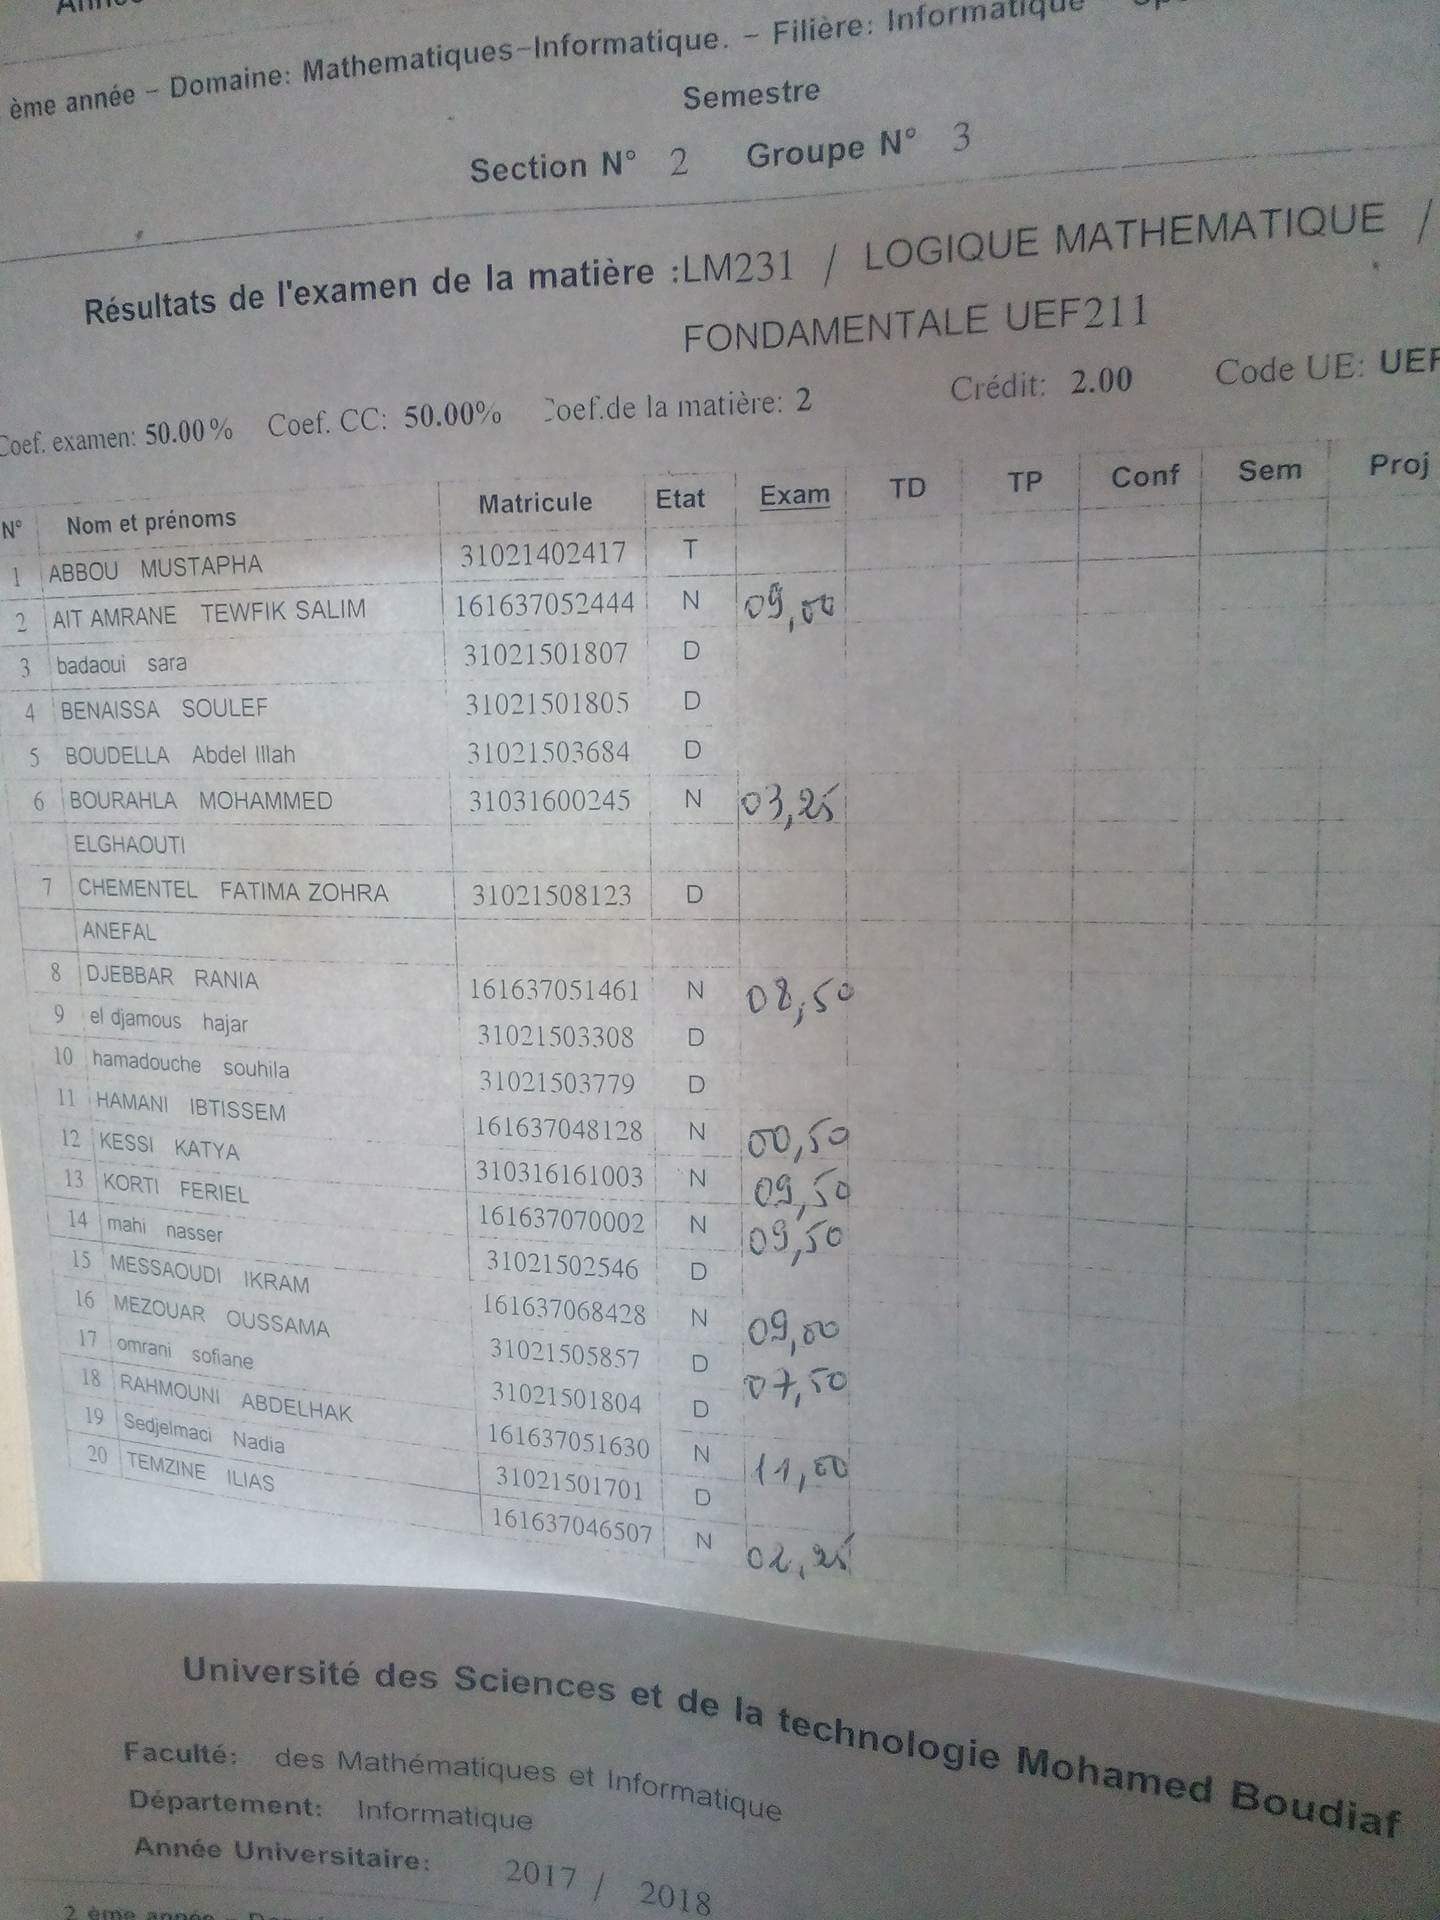 ème année - Domaine: Mathematiques-Informatique. - Filière: Informatique
Semestre
Section N° 2 Groupe N° 3
Résultats de l'examen de la matière :LM231 / LOGIQUE MATHEMATIQUE /
FONDAMENTALE UEF211
Coef. examen: 50.00% Coef. CC: 50.00% Coef.de la matière: 2 Crédit: 2.00 Code UE: UEF
N° Nom et prénoms Matricule Etat Exam TD TP Conf Sem Proj
1 ABBOU MUSTAPHA 31021402417 T
2 AIT AMRANE TEWFIK SALIM 161637052444 N 09,00
3 badaoui sara 31021501807 D
4 BENAISSA SOULEF 31021501805 D
5 BOUDELLA Abdel Illah 31021503684 D
6 BOURAHLA MOHAMMED 31031600245 N 03,25
ELGHAOUTI
7 CHEMENTEL FATIMA ZOHRA 31021508123 D
ANEFAL
8 DJEBBAR RANIA 161637051461 N 08,50
9 el djamous hajar 31021503308 D
10 hamadouche souhila 31021503779 D
11 HAMANI IBTISSEM 161637048128 N 00,50
12 KESSI KATYA 310316161003 N 09,50
13 KORTI FERIEL 161637070002 N 09,50
14 mahi nasser 31021502546 D
15 MESSAOUDI IKRAM 161637068428 N 09,00
16 MEZOUAR OUSSAMA 31021505857 D 07,50
17 omrani sofiane 31021501804 D
18 RAHMOUNI ABDELHAK 161637051630 N 11,00
19 Sedjelmaci Nadia 31021501701 D
20 TEMZINE ILIAS 161637046507 N 02,25
Université des Sciences et de la technologie Mohamed Boudiaf
Faculté: des Mathématiques et Informatique
Département: Informatique
Année Universitaire: 2017 / 2018
2 ème année -